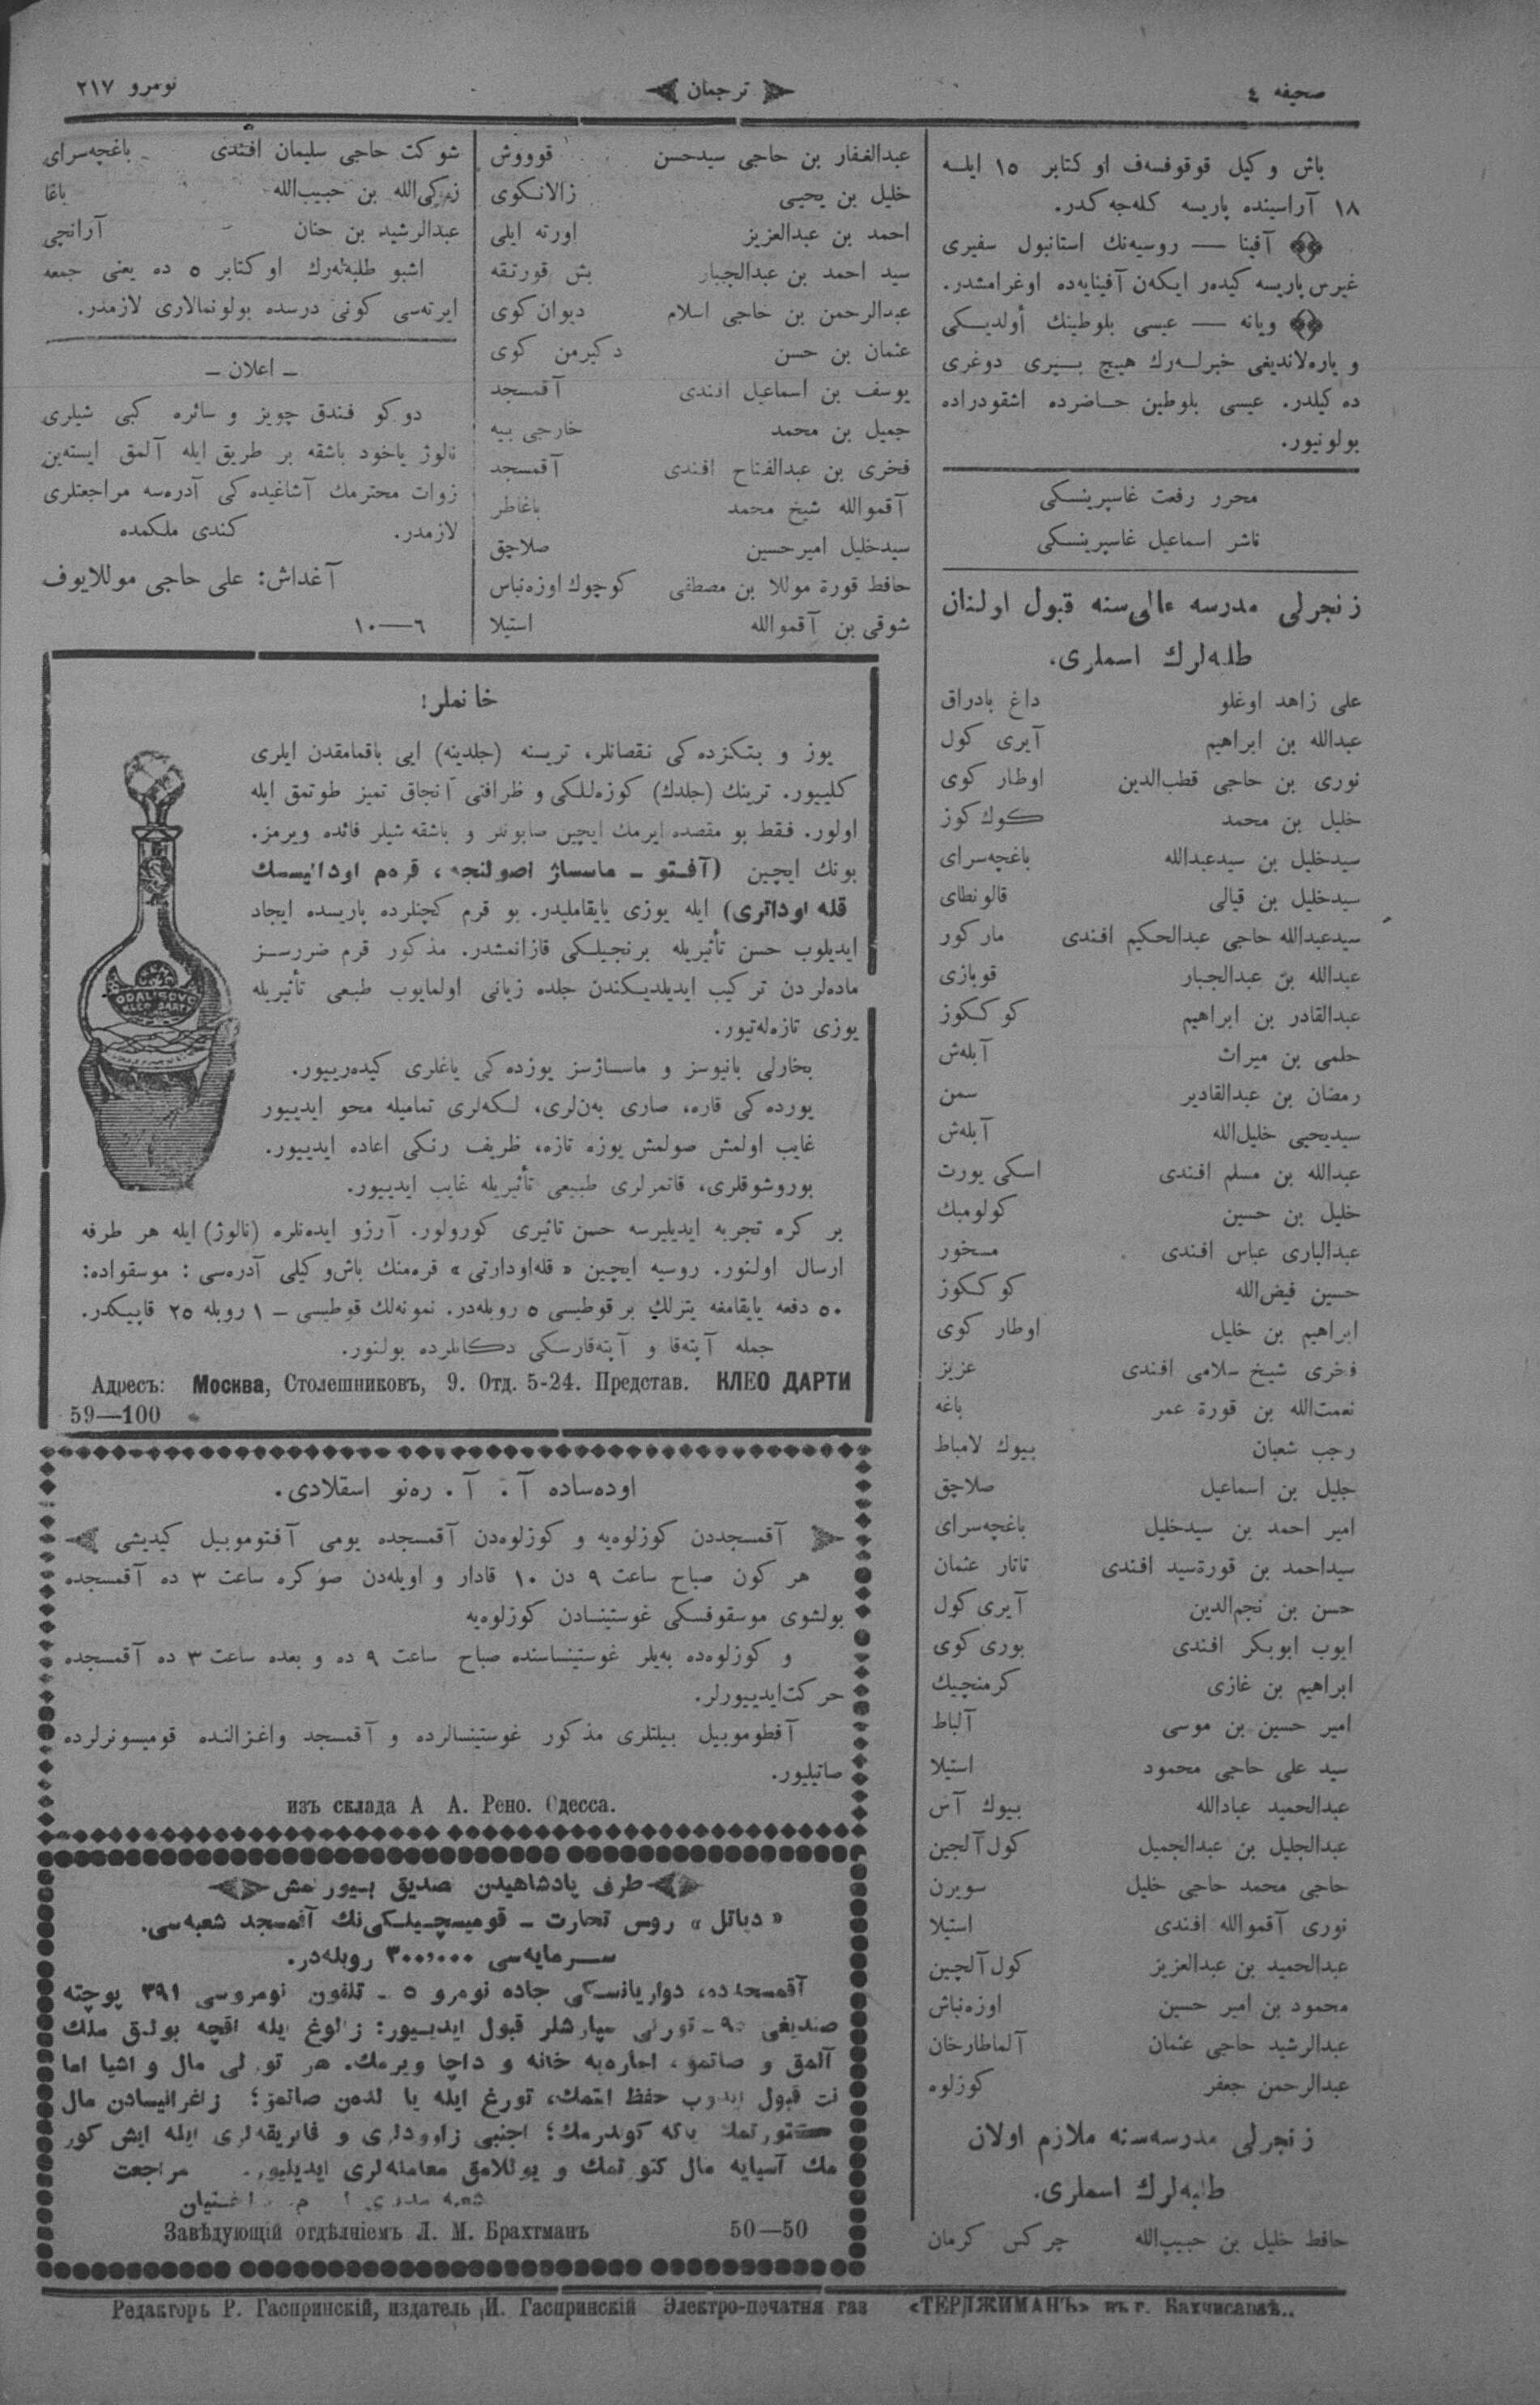 صحیفه ٤
ترجمان
نومرو ٢١٧
باش وكیل قوقوفسەف اوكتابر ١٥ ایلە
١٨ آراسینده پاریسه كلەجەكدر.
آفینا — روسیەنك استانبول سفیری
غیرس پاریسه كیدەر ایكەن آفینایەده اوغرامشدر.
ویانه — عیسی بلوطینك أولدیـكی
و یارەلاندیغی خبرلـەرك هیچ بـیری دوغری
دەكیلدر. عیسی بلوطین حـاضرده اشقودراده
بولونیور.
محرر رفعت غاسپرینسكی
ناشر اسماعیل غاسپرینسكی
زنجرلی مدرسه عالیسنه قبول اولنان
طلبەلرك اسملری.
علی زاهد اوغلو داغ بادراق
عبدالله بن ابراهیم آیری كول
نوری بن حاجی قطب‌الدین اوطار كوی
خلیل بن محمد كوك كوز
سیدخلیل بن سیدعبدالله باغچەسرای
سیدخلیل بن قیالی قالونطای
سیدعبدالله حاجی عبدالحكیم افندی ماركور
عبدالله بن عبدالجبار قوبازی
عبدالقادر بن ابراهیم كوككوز
حلمی بن میراث آبلەش
رمضان بن عبدالقادیر سمن
سیدیحیی خلیل‌الله آبلەش
عبدالله بن مسلم افندی اسكی یورت
خلیل بن حسین كولومبك
عبدالباری عباس افندی مسخور
حسین فیض‌الله كوككوز
ابراهیم بن خلیل اوطار كوی
فخری شیخ سلامی افندی عزیز
نعمت‌الله بن قورة عمر باغه
رجب شعبان بیوك لامباط
جلیل بن اسماعیل صلاچق
امیر احمد بن سیدخلیل باغچەسرای
سیداحمد بن قورةسید افندی تاتار عثمان
حسن بن نجم‌الدین آیری كول
ایوب ابوبكر افندی بوری كوی
ابراهیم بن غازی كرمنچیك
امیر حسین بن موسی آلباط
سید علی حاجی محمود استیلا
عبدالحمید عبادالله بیوك آش
عبدالجلیل بن عبدالجمیل كول آلجین
حاجی محمد حاجی خلیل سویرن
نوری آقموالله افندی استیلا
عبدالحمید بن عبدالعزیز كول آلچین
محمود بن امیر حسین اوزەنباش
عبدالرشید حاجی عثمان آلماطارخان
عبدالرحمن جعفر كوزلوه
زنجرلی مدرسەسنه ملازم اولان
طلبەلرك اسملری.
حافظ خلیل بن حبیب‌الله چركس كرمان
عبدالغفار بن حاجی سیدحسن قوووش
خلیل بن یحیی زالانكوی
احمد بن عبدالعزیز اورته ایلی
سید احمد بن عبدالجبار بش قورتقه
عبدالرحمن بن حاجی اسلام دیوان كوی
عثمان بن حسن دكیرمن كوی
یوسف بن اسماعیل افندی آقمسجد
جمیل بن محمد خارجی بیه
فخری بن عبدالفتاح افندی آقمسجد
آقموالله شیخ محمد باغاطر
سیدخلیل امیرحسین صلاچق
حافظ قورة موللا بن مصطفی كوچوك اوزەنباس
شوقی بن آقموالله استیلا
شوكت حاجی سلیمان افندی باغچەسرای
زكی‌الله بن حبیب‌الله باغا
عبدالرشید بن حنان آرانچی
اشبو طلبەلەرك اوكتابر ٥ ده یعنی جمعه
ایرتەسی كونی درسده بولونمالاری لازمدر.
ـ اعلان ـ
دوكو فندق چویز و سائره كبی شیلری
نالوژ یاخود باشقه بر طریق ایله آلمق ایستەین
زوات محترمك آشاغیدەكی آدرەسه مراجعتلری
لازمدر. كندی ملكمده
آغداش: علی حاجی موللایوف
٦—١٠
خانملر!
یوز و بتكزدەكی نقصانلر، تریسنه (جلدینه) ایی باقمامقدن ایلری
كلییور. ترینك (جلدك) كوزەللكی و ظرافتی آنجاق تمیز طوتمق ایله
اولور. فقط بو مقصده ایرمك ایچین صابونلر و باشقه شیلر فائده ویرمز.
بونك ایچین (آفتو ـ ماسساژ اصولنجه، قرەم اودالیسك
قله اوداتری) ایله یوزی یایقاملیدر. بو قرم كچنلرده پاریسده ایجاد
ایدیلوب حسن تأثیریله برنجیلكی قازانمشدر. مذكور قرم ضررسـز
مادەلردن تركیب ایدیلدیكندن جلده زیانی اولمایوب طبعی تأثیریله
یوزی تازەلەتیور.
بخارلی بانیوسز و ماسساژسز یوزدەكی یاغلری كیدەرییور.
یوردەكی قاره، صاری بەن‌لری، لكەلری تمامیله محو ایدییور
غایب اولمش صولمش یوزه تازه، ظریف رنكی اعاده ایدییور.
بوروشوقلری، قاتمرلری طبیعی تأثیریله غایب ایدییور.
بر كره تجربه ایدیلیرسه حسن تاثیری كورولور. آرزو ایدەنلره (نالوژ) ایله هر طرفه
ارسال اولنور. روسیه ایچین «قلەاودارتی» قرەمنك باش‌وكیلی آدرەسی : موسقواده:
٥٠ دفعه یایقامغه یترلك بر قوطیسی ٥ روبلەدر. نمونەلك قوطیسی – ١ روبله ٢٥ قاپیكدر.
جمله آپتەقا و آپتەقارسكی دكانلرده بولنور.
Адресъ: Москва, Столешниковъ, 9. Отд. 5-24. Представ. КЛЕО ДАРТИ
59—100
اودەساده آ. آ. رەنو اسقلادی.
آقمسجددن كوزلوەیه و كوزلوەدن آقمسجده یومی آفتوموبیل كیدیشی
هر كون صباح ساعت ٩ دن ١٠ قادار و اویلەدن صوكره ساعت ٣ ده آقمسجده
بولشوی موسقوفسكی غوستینسادن كوزلوەیه
و كوزلوەده بەیلر غوستینساسنده صباح ساعت ٩ ده و بعده ساعت ٣ ده آقمسجده
حركت‌ایدییورلر.
آفطوموبیل بیلتلری مذكور غوستینسالرده و آقمسجد واغزالنده قومیسونرلرده
صاتیلیور.
изъ склада А А. Рено. Одесса.
طرف پادشاهیدن تصدیق بیورلمش
روس تجارت ـ قومیسچیلكی‌نك آقمسجد شعبەسی.
سـرمایەسی ٣٠٠،٠٠٠ روبلەدر.
آقمسجدده، دواریانسكی جاده نومرو ٥ ـ تلفون نومروسی ٣٩١ پوچته
صندیغی قبول ایدییور: ایله اقچه بولـق ملك
آلمق و صاتمق، اجارەیه خانه و داچا ویرمك. هر مال و اشیا اما
نت قبول ایدوب حفظ ایتمك، تورغ ایله یا صاتمق؛ زاغرانیسادن مال
كوندرمك؛ اجنبی و فابریقەلری ایله ایش كور
مك آسیایه مال و یوللامق معاملەلری مراجعت
Завѣдующій отдѣлніемъ Л. М. Брахтманъ 50—50
Редакторъ Р. Гаспринскій, издатель И. Гаспринскій Электро-печатня газ «ТЕРДЖИМАНЪ» въ г. Бахчисараѣ..